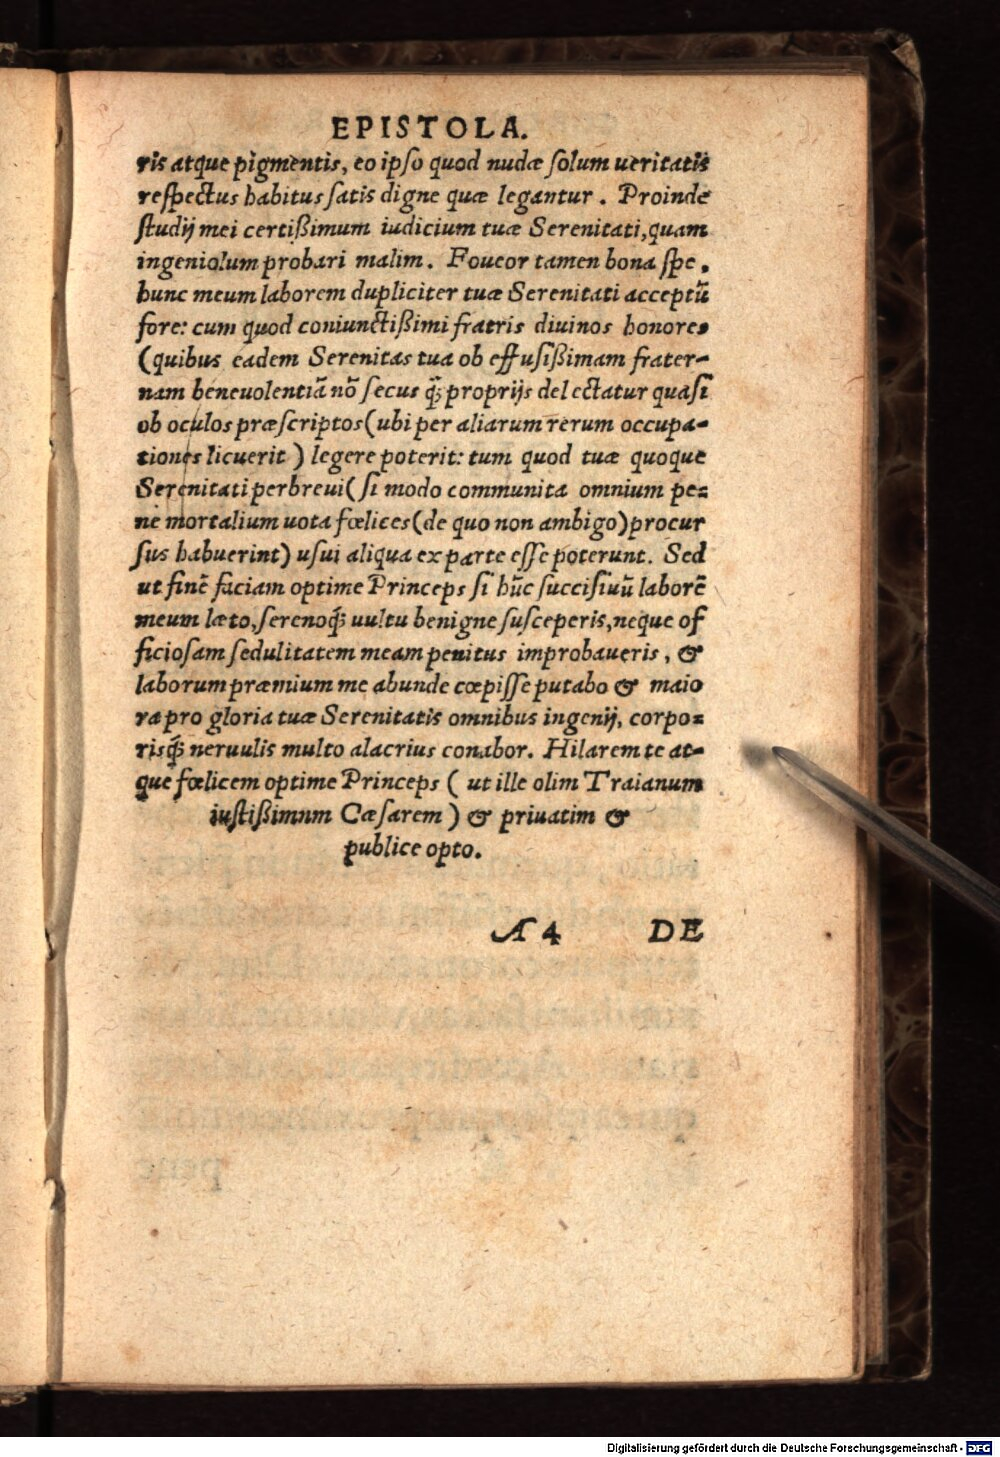 EPISTOLA.
ris atque pigmentis, eo ipso quod nudæ solum ueritatis
respectus habitus satis digne quæ legantur. Proinde
studij mei certißimum iudicium tuæ Serenitati, quam
ingeniolum probari malim. Foueor tamen bona spe,
hunc meum laborem dupliciter tuæ Serenitati acceptũ
fore: cum quod coniunctißimi fratris diuinos honores
(quibus eadem Serenitas tua ob effusißimam frater-
nam beneuolentiã nõ secus q̃; proprijs delectatur quasi
ob oculos præscriptos (ubi per aliarum rerum occupa-
tiones licuerit) legere poterit: tum quod tuæ quoque
Serenitati perbreui (si modo communita omnium pe=
ne mortalium uota fœlices (de quo non ambigo) procur
sus habuerint) usui aliqua ex parte esse poterunt. Sed
ut finẽ faciam optime Princeps si hũc succisiuũ laborẽ
meum læto, serenoq́; uultu benigne susceperis, neque of
ficiosam sedulitatem meam penitus improbaueris, &
laborum præmium me abunde cœpisse putabo & maio
ra pro gloria tuæ Serenitatis omnibus ingenij, corpo=
risq́; neruulis multo alacrius conabor. Hilarem te at-
que fœlicem optime Princeps ( ut ille olim Traianum
iustißimnm Cæsarem) & priuatim &
publice opto.
A 4 DE
Digitalisierung gefördert durch die Deutsche Forschungsgemeinschaft - DFG